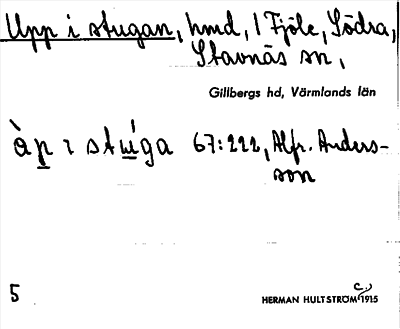 Upp i stugan, hmd, 1 Fjöle, Södra,
Stavnäs sn,
Gillbergs hd, Värmlands län
àp ı stúga 67:222, Alfr. Anders-
son
5
HERMAN HULTSTRÖM c.) 1915